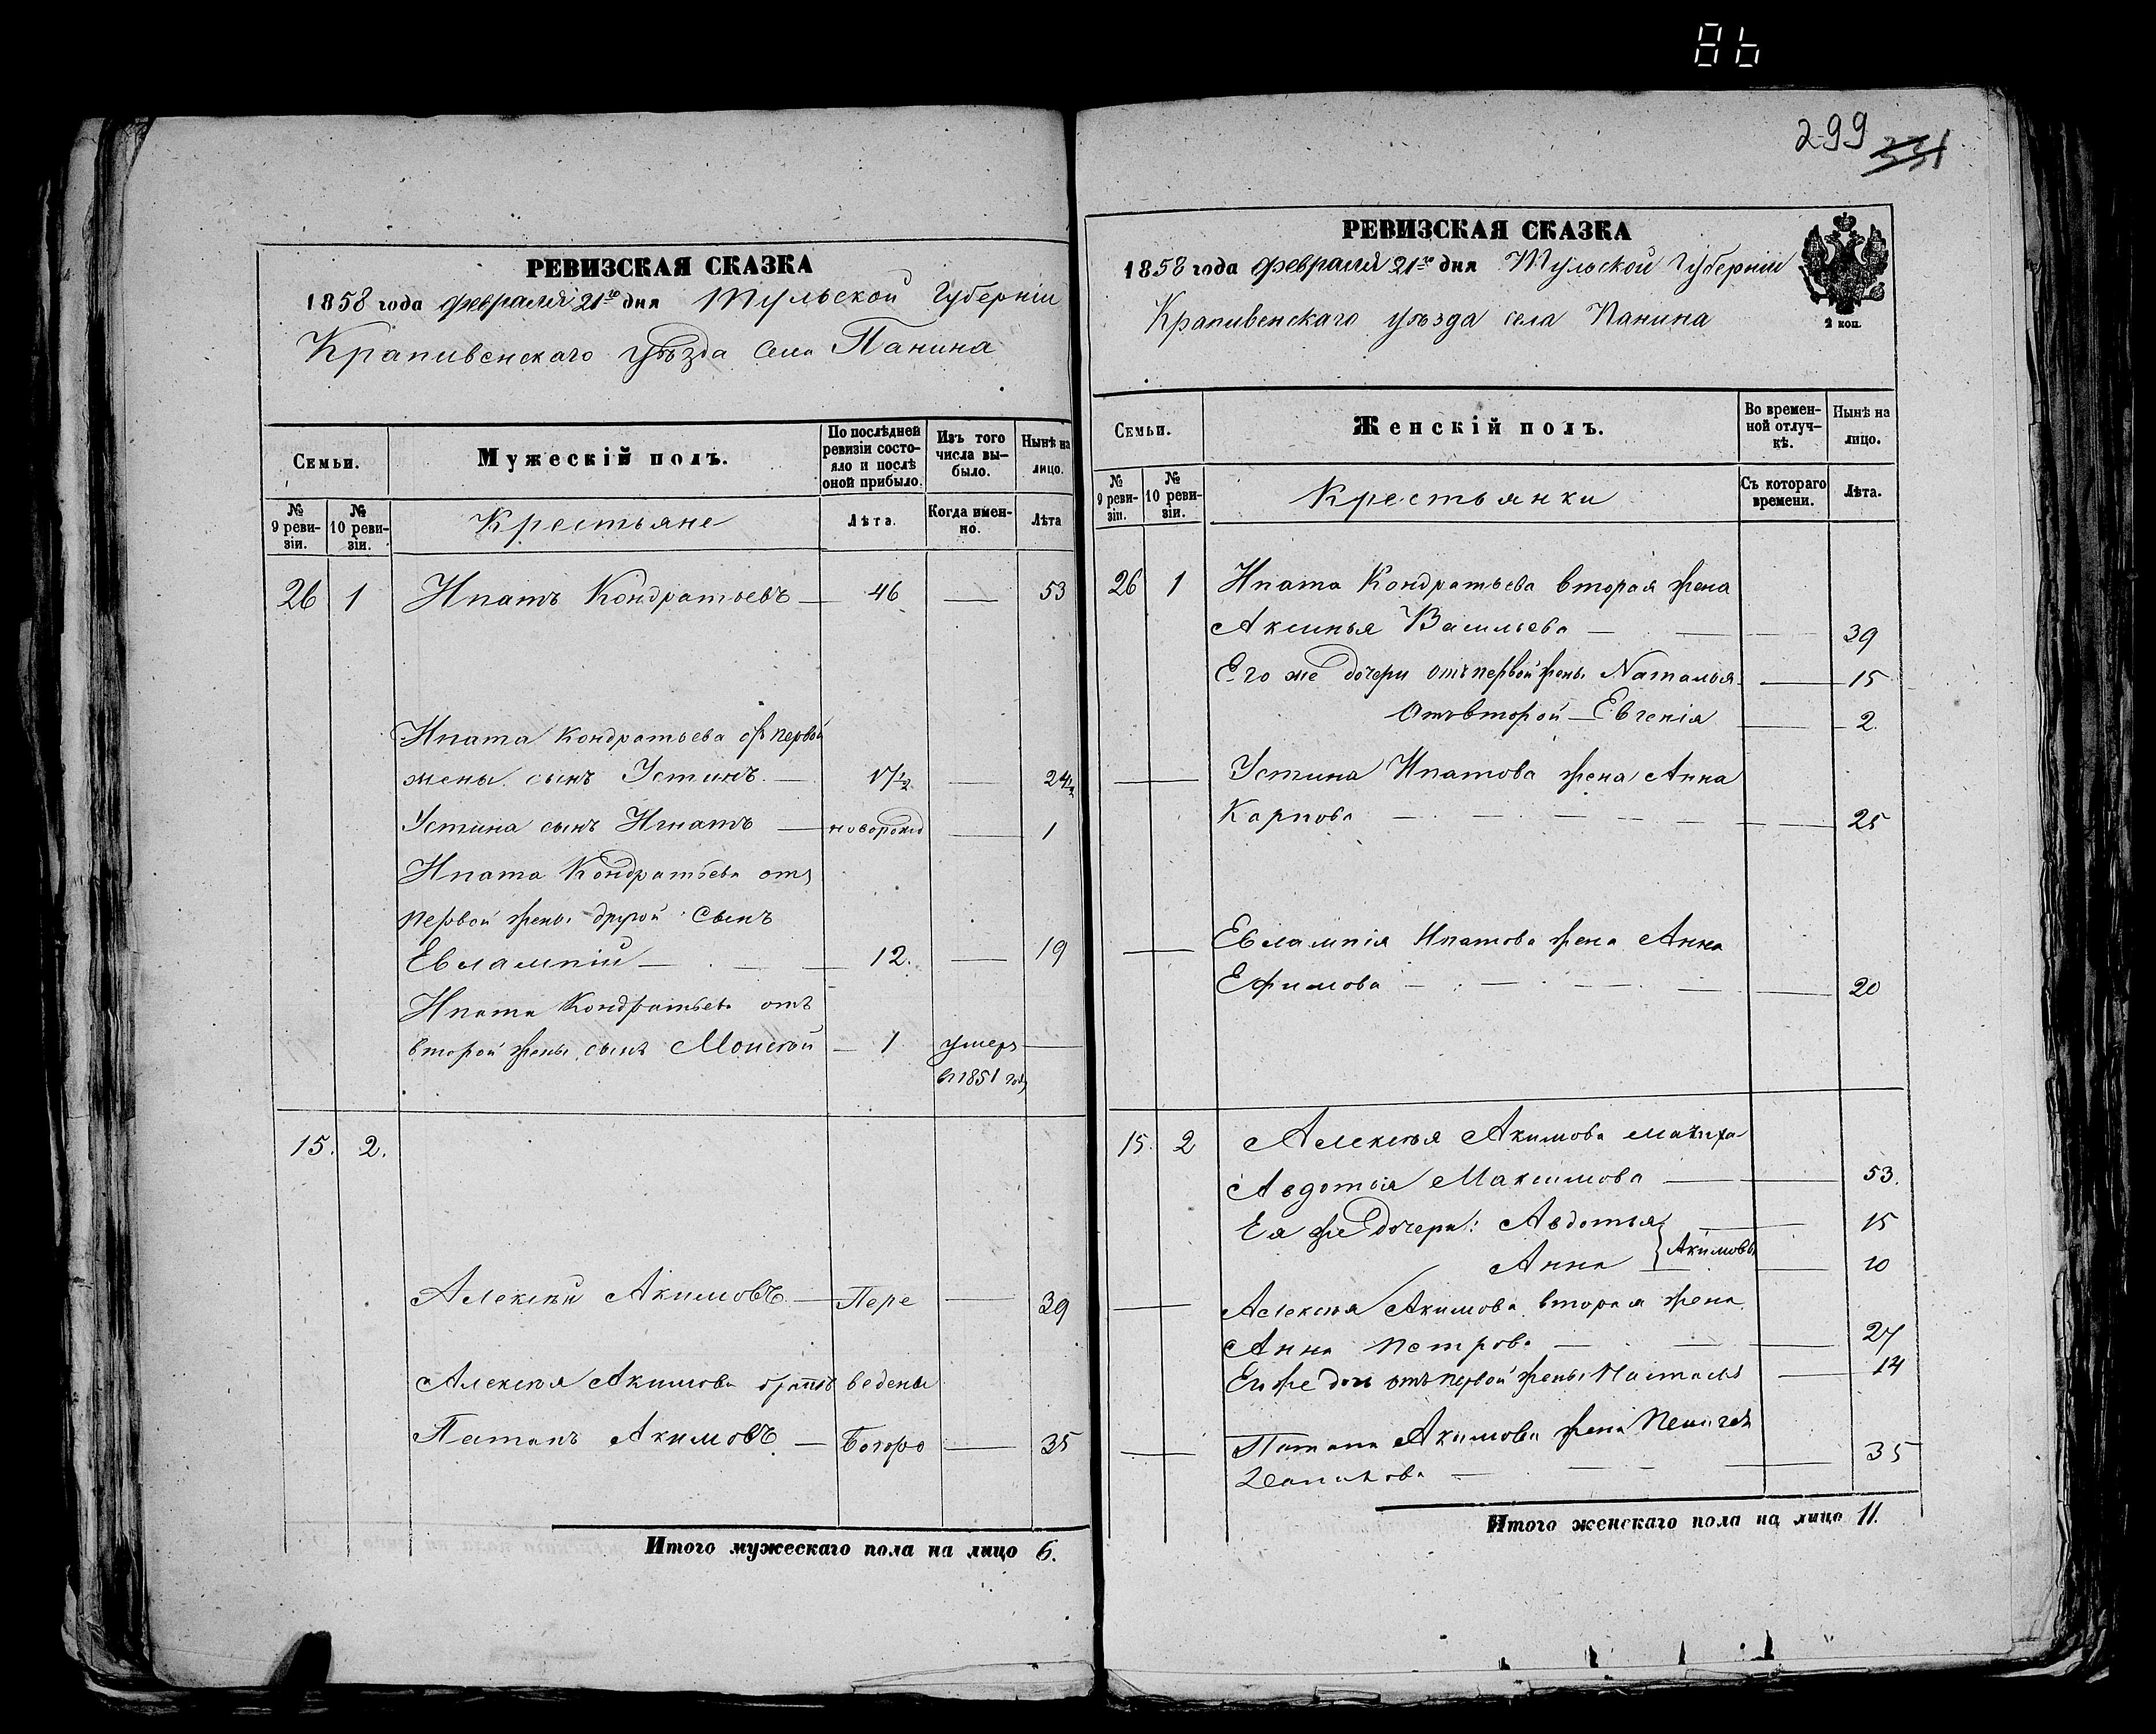 86
299
331
РЕВИЗСКАЯ СКАЗКА
1858 года февраля 21го дня Тульской Губерніи
Крапивенскаго уѣзда села Панина
Семьи.
Мужескій полъ.
По послѣдней ревизіи состояло и послѣ оной прибыло.
Изъ того числа выбыло.
Нынѣ на лицо.
№ 9 ревизіи.
№ 10 ревизіи.
Крестьяне
Лѣта.
Когда именно.
Лѣта
26 1 Ипатъ Кондратьевъ — 46 — 53
Ипата Кондратьева отъ первой
жены сынъ Устинъ — 17½ — 24½
Устина сынъ Игнатъ — новорожд — 1
Ипата Кондратьева отъ
первой жены другой сынъ
Евлампій — 12. — 19
Ипата Кондратьева отъ
второй жены сынъ Моисей — 1 умеръ —
въ 1851 году
15. 2.
Алексѣй Акимовъ — Пере — 39
Алексѣя Акимова братъ ведены
Потапъ Акимовъ — Богоро — 35
Итого мужескаго пола на лицо 6.
РЕВИЗСКАЯ СКАЗКА
1858 года февраля 21го дня Тульской Губерніи
Крапивенскаго уѣзда села Панина
2 коп.
Семьи.
Женскій полъ.
Во временной отлучкѣ.
Нынѣ на лицо.
№ 9 ревизіи.
№ 10 ревизіи.
Крестьянки
Съ котораго времени.
Лѣта.
26 1 Ипата Кондратьева вторая жена
Аксинья Васильева — — — 39
Его же дочери отъ первой жены Наталья — 15
Отъ второй — Евгенія — 2
— Устина Ипатова жена Анна
Карпова — — — 25
— Евлампія Ипатова жена Анна
Ефимова — — — 20
15. 2 Алексѣя Акимова мачиха
Авдотья Максимова — — 53.
Ея же дочери: Авдотья — 15
Анна } Акимовы — 10
— Алексѣя Акимова вторая жена
Анна Петрова — — — 27
Его же дочь отъ первой жены — 14
— Потапа Акимова жена
— — — 35
Итого женскаго пола на лицо 11.